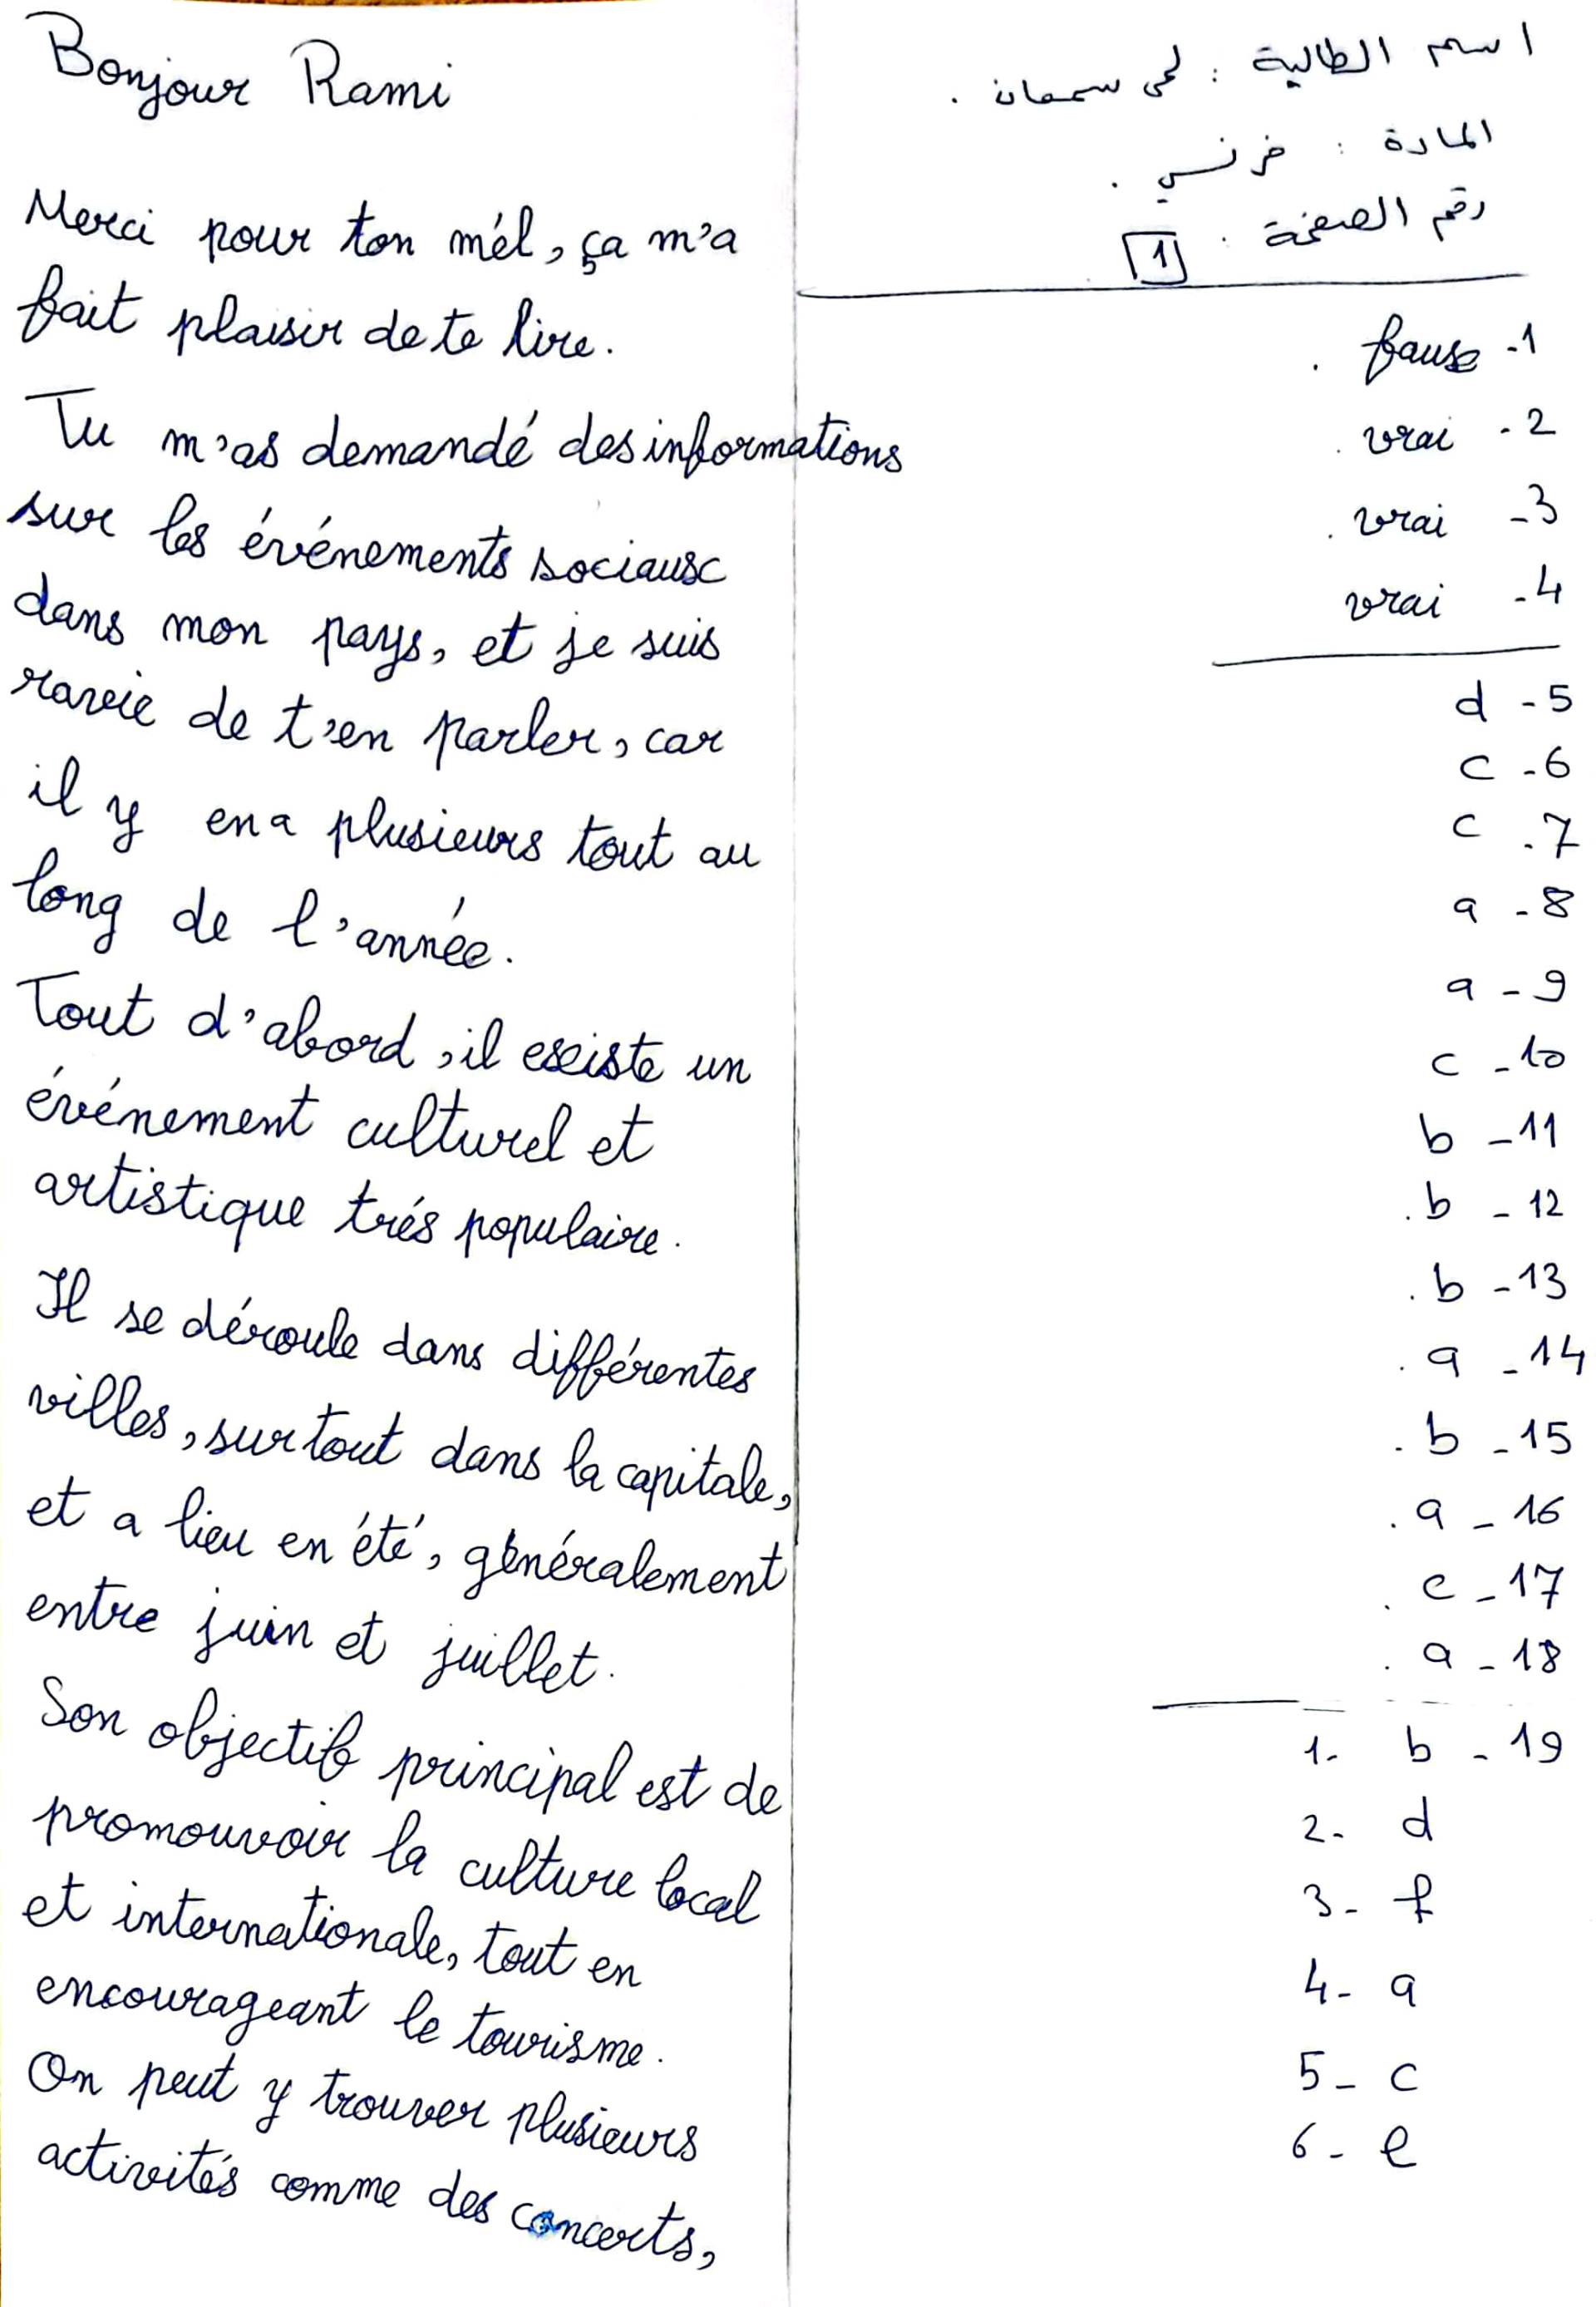 اسم الطالبة : لمى سمعان .
المادة : فرنسي .
رقم الصفحة . 1
fause -1 .
vrai - 2 .
vrai -3 .
vrai -4
d -5
c -6
c -7
a -8
a -9
c -10
b -11
b -12 .
b -13 .
a -14 .
b -15 .
a -16 .
c -17 .
a -18 .
1- b -19
2- d
3- f
4- a
5- c
6- e
Bonjour Rami
Merci pour ton mél, ça m'a
fait plaisir de te lire.
Tu m'as demandé des informations
sur les événements sociaux
dans mon pays, et je suis
ravie de t'en parler, car
il y en a plusieurs tout au
long de l'année.
Tout d'abord, il existe un
événement culturel et
artistique trés populaire.
Il se déroule dans différentes
villes, surtout dans la capitale,
et a lieu en été, généralement
entre juin et juillet.
Son objectif principal est de
promouvoir la culture local
et internationale, tout en
encourageant le tourisme.
On peut y trouver plusieurs
activités comme des concerts,